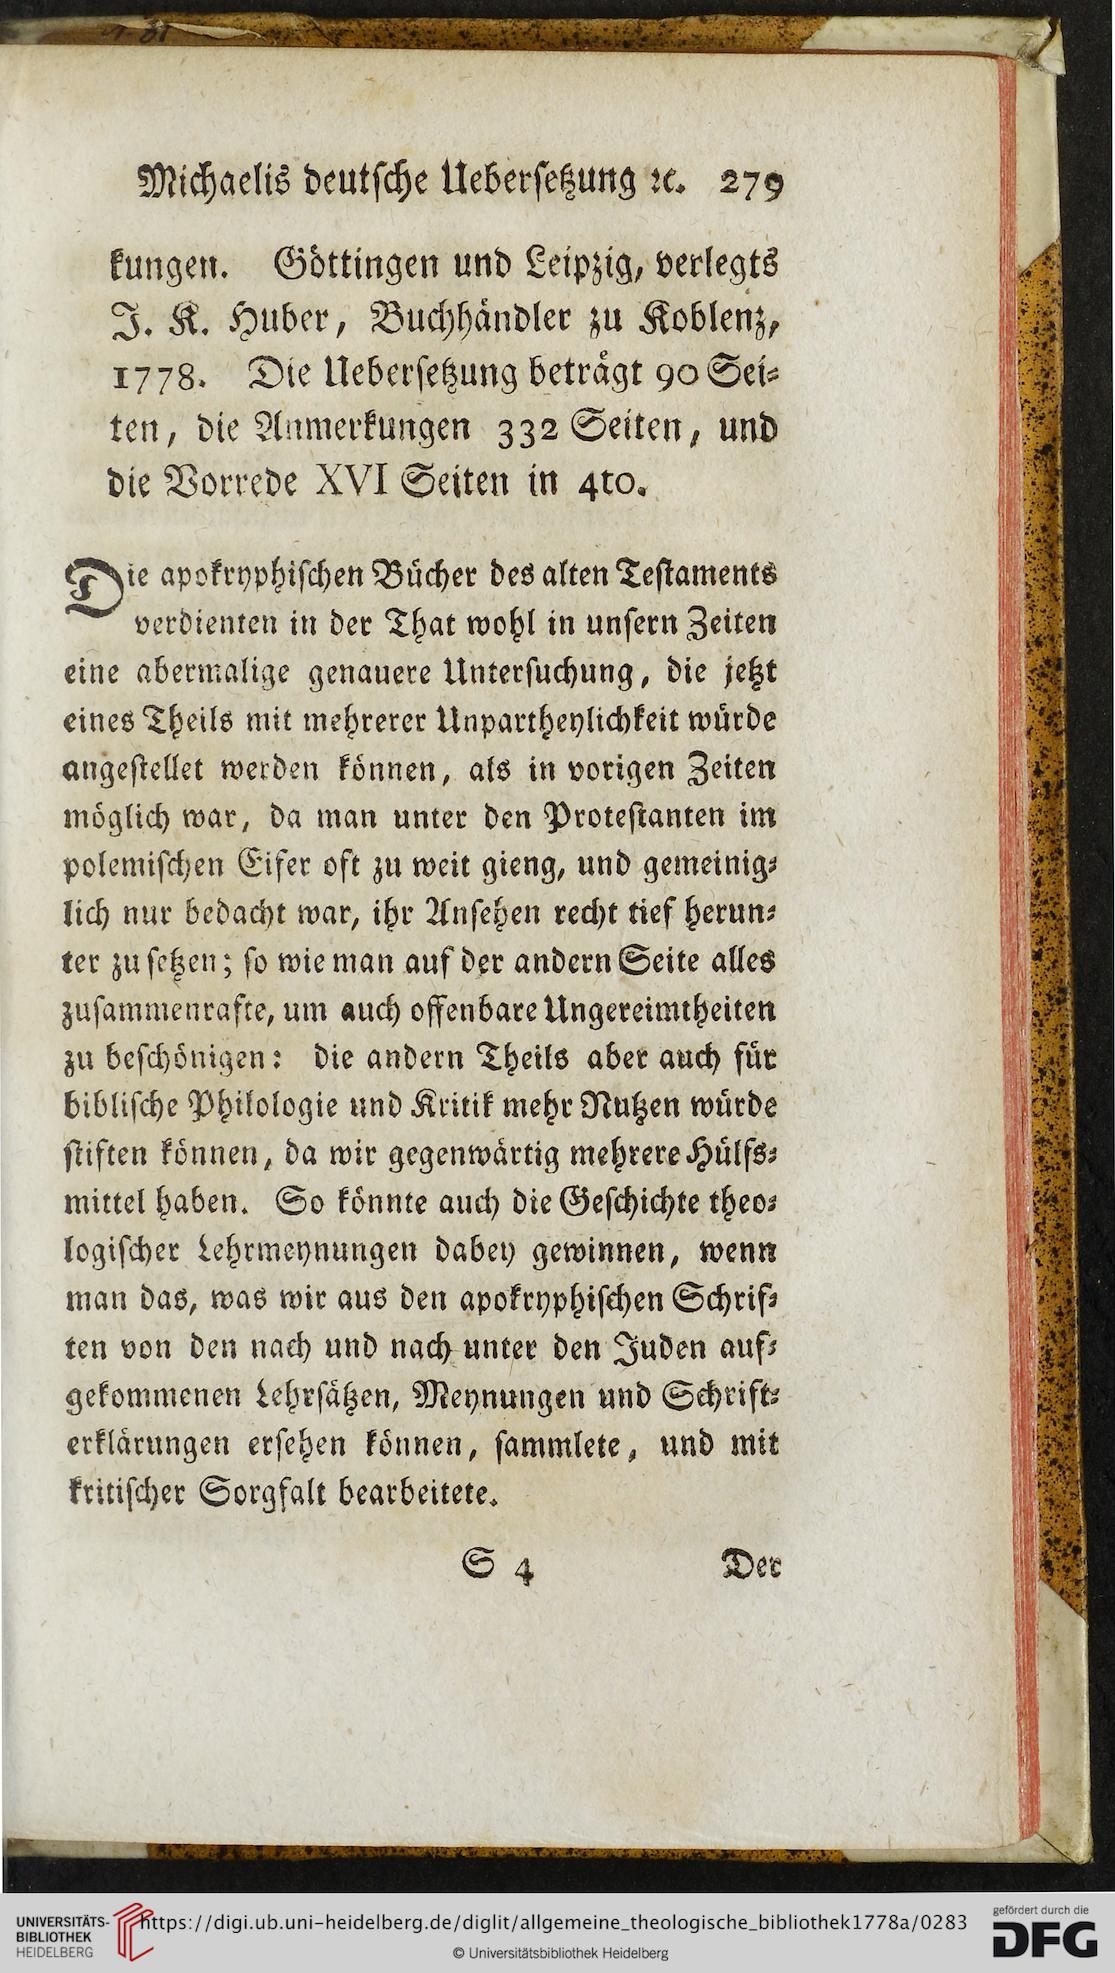 Michaelis deutsche Uebersetzung ꝛc. 279
kungen. Göttingen und Leipzig, verlegts
J. K. Huber, Buchhändler zu Koblenz,
1778. Die Uebersetzung beträgt 90 Sei-
ten, die Anmerkungen 332 Seiten, und
die Vorrede XVI Seiten in 4to.
Die apokryphischen Bücher des alten Testaments
verdienten in der That wohl in unsern Zeiten
eine abermalige genauere Untersuchung, die jetzt
eines Theils mit mehrerer Unpartheylichkeit würde
angestellet werden können, als in vorigen Zeiten
möglich war, da man unter den Protestanten im
polemischen Eifer oft zu weit gieng, und gemeinig-
lich nur bedacht war, ihr Ansehen recht tief herun-
ter zu setzen; so wie man auf der andern Seite alles
zusammenrafte, um auch offenbare Ungereimtheiten
zu beschönigen: die andern Theils aber auch für
biblische Philologie und Kritik mehr Nutzen würde
stiften können, da wir gegenwärtig mehrere Hülfs-
mittel haben. So könnte auch die Geschichte theo-
logischer Lehrmeynungen dabey gewinnen, wenn
man das, was wir aus den apokryphischen Schrif-
ten von den nach und nach unter den Juden auf-
gekommenen Lehrsätzen, Meynungen und Schrift-
erklärungen ersehen können, sammlete, und mit
kritischer Sorgfalt bearbeitete.
S 4 Der
UNIVERSITÄTS-
BIBLIOTHEK
HEIDELBERG
https://digi.ub.uni-heidelberg.de/diglit/allgemeine_theologische_bibliothek1778a/0283
© Universitätsbibliothek Heidelberg
gefördert durch die
DFG